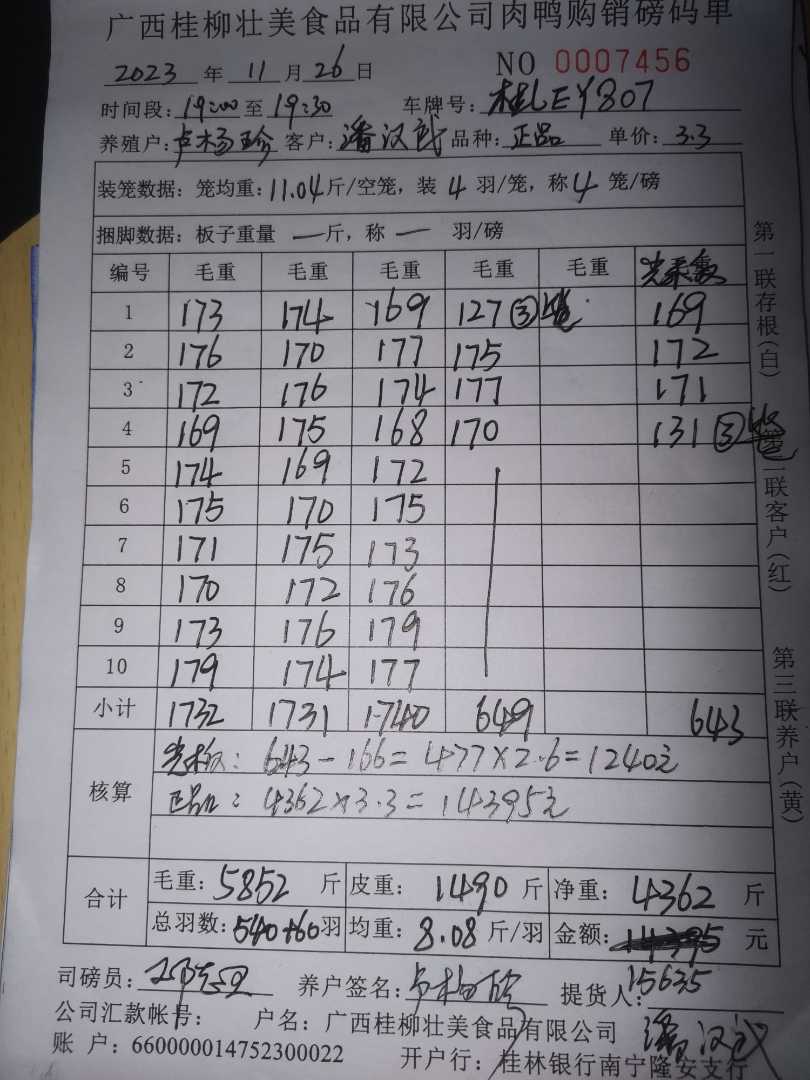 广西桂柳壮美食品有限公司肉鸭购销磅码单
2023 年 11 月 26 日 NO 0007456
时间段: 19:00 至 19:30 车牌号: 桂LEY807
养殖户: 卢杨珍 客户: 潘汉 品种: 正品 单价: 3.3
装笼数据: 笼均重: 11.04 斤/空笼, 装 4 羽/笼, 称 4 笼/磅
捆脚数据: 板子重量 — 斤, 称 — 羽/磅
编号 毛重 毛重 毛重 毛重 毛重
1 173 174 169 127 ③笼 169
2 176 170 177 175 172
3 172 176 174 177 171
4 169 175 168 170 131 ③笼
5 174 169 172
6 175 170 175
7 171 175 173
8 170 172 176
9 173 176 179
10 179 174 177
小计 1732 1731 1740 649 643
核算
643-166=477×2.6=1240元
正品: 4362×3.3=14395元
合计 毛重: 5852 斤 皮重: 1490 斤 净重: 4362 斤
总羽数: 540+60 羽 均重: 8.08 斤/羽 金额: 14395 元
15635
司磅员: 养户签名: 卢杨 提货人: 潘汉
公司汇款帐号: 户名: 广西桂柳壮美食品有限公司
账 户: 660000014752300022 开户行: 桂林银行南宁隆安支行
第一联存根(白)
第二联客户(红)
第三联养户(黄)